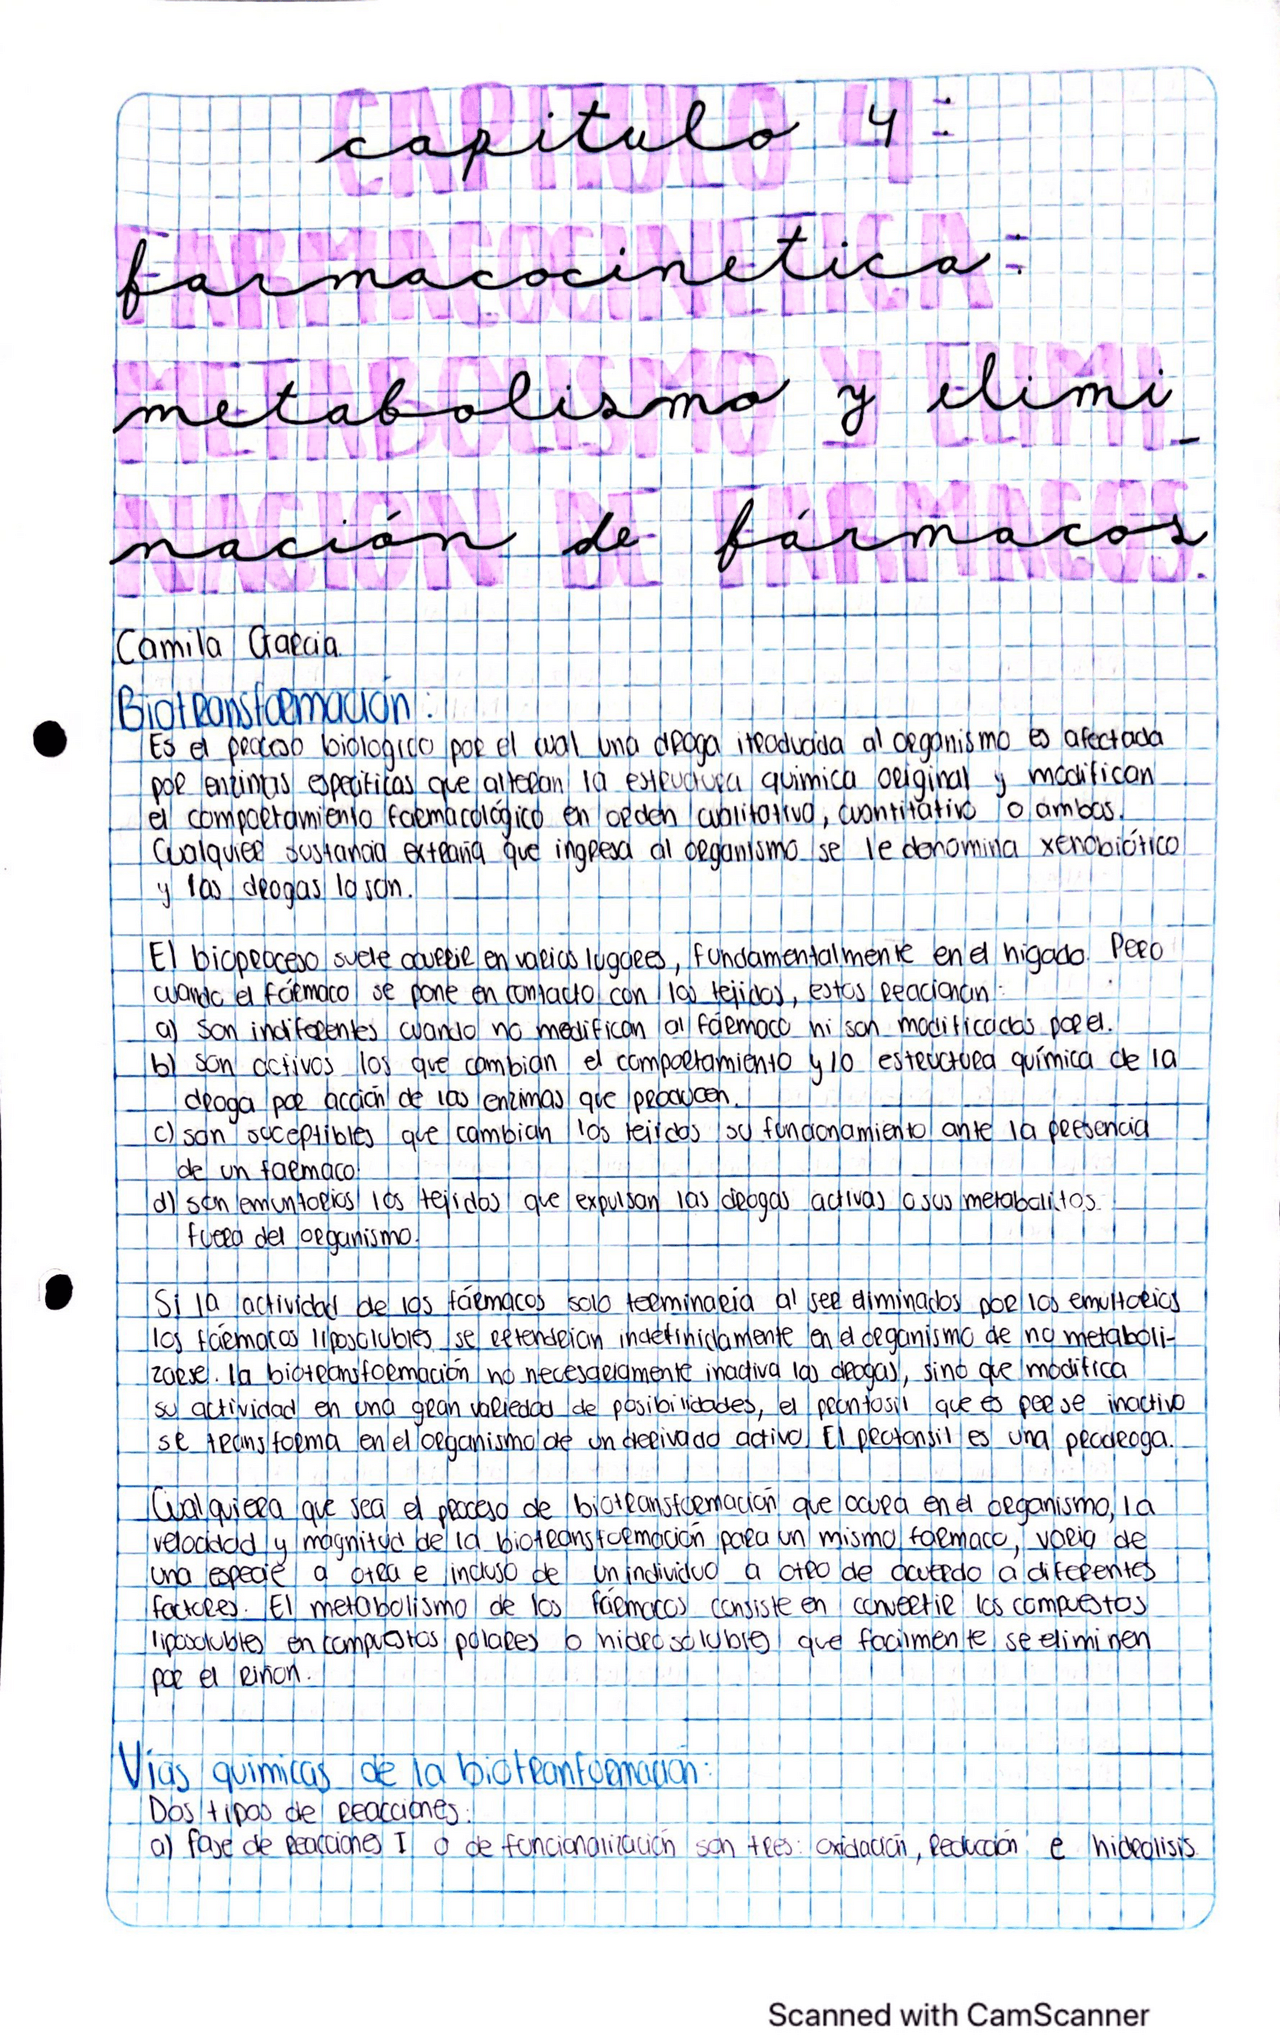 capitulo 4:
farmacocinetica:
metabolismo y elimi_
nación de fármacos.
Camila Garcia.
Biotransformación:
Es el proceso biologico por el cual una droga itroducida al organismo es afectada
por enzimas especificas que alteran la estructura quimica original y modifican
el comportamiento farmacológico en orden cualitativo, cuantitativo o ambos.
Cualquier sustancia extraña que ingresa al organismo se le denomina xenobiótico
y las drogas lo son.
El bioproceso suele ocurrir en varios lugares, fundamentalmente en el higado. Pero
cuando el fármaco se pone en contacto con los tejidos, estos reacionan:
a) son indiferentes cuando no modifican al fármaco ni son modificados por el.
b) son activos los que cambian el comportamiento y lo estructura química de la
droga por acción de las enzimas que producen.
c) son suceptibles que cambian los tejidos su funcionamiento ante la presencia
de un farmaco.
d) son emuntorios los tejidos que expulsan las drogas activas o sus metabolitos.
fuera del organismo.
Si la actividad de los fármacos solo terminaria al ser eliminados por los emultorios
los fármacos liposolubles se retendrian indefinidamente en el organismo de no metaboli-
zarse. la biotransformación no necesariamente inactiva las drogas, sino que modifica
su actividad en una gran variedad de posibilidades, el prontosil que es per se inactivo
se transforma en el organismo de un derivado activo. El protonsil es una prodroga.
Cualquiera que sea el proceso de biotransformación que ocura en el organismo, la
velocidad y magnitud de la biotransformación para un mismo farmaco, varia de
una especie a otra e incluso de un individuo a otro de acuerdo a diferentes
factores. El metabolismo de los fármacos consiste en convertir los compuestos
liposolubles en compuestos polares o hidrosolubles que facilmente se eliminen
por el riñon.
Vías quimicas de la biotranformación:
Dos tipos de reacciones:
a) fase de reacciones I o de funcionalización son tres: oxidación, reducción e hidrolisis
Scanned with CamScanner